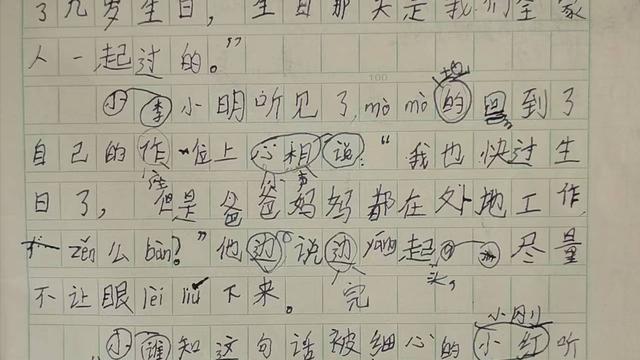 了几岁生日，生日那天是我们全家
人一起过的。”
地
小李小明听见了,mò mò的回到了
自己的作位上心相说:“我也快过生
座 心声
日了,但是爸爸妈妈都在外地工作,
zěn么bàn?”他边说边起 尽量
头,
不让眼lèi liú下来。完
小刚
小谁知这句话被细心的小红听